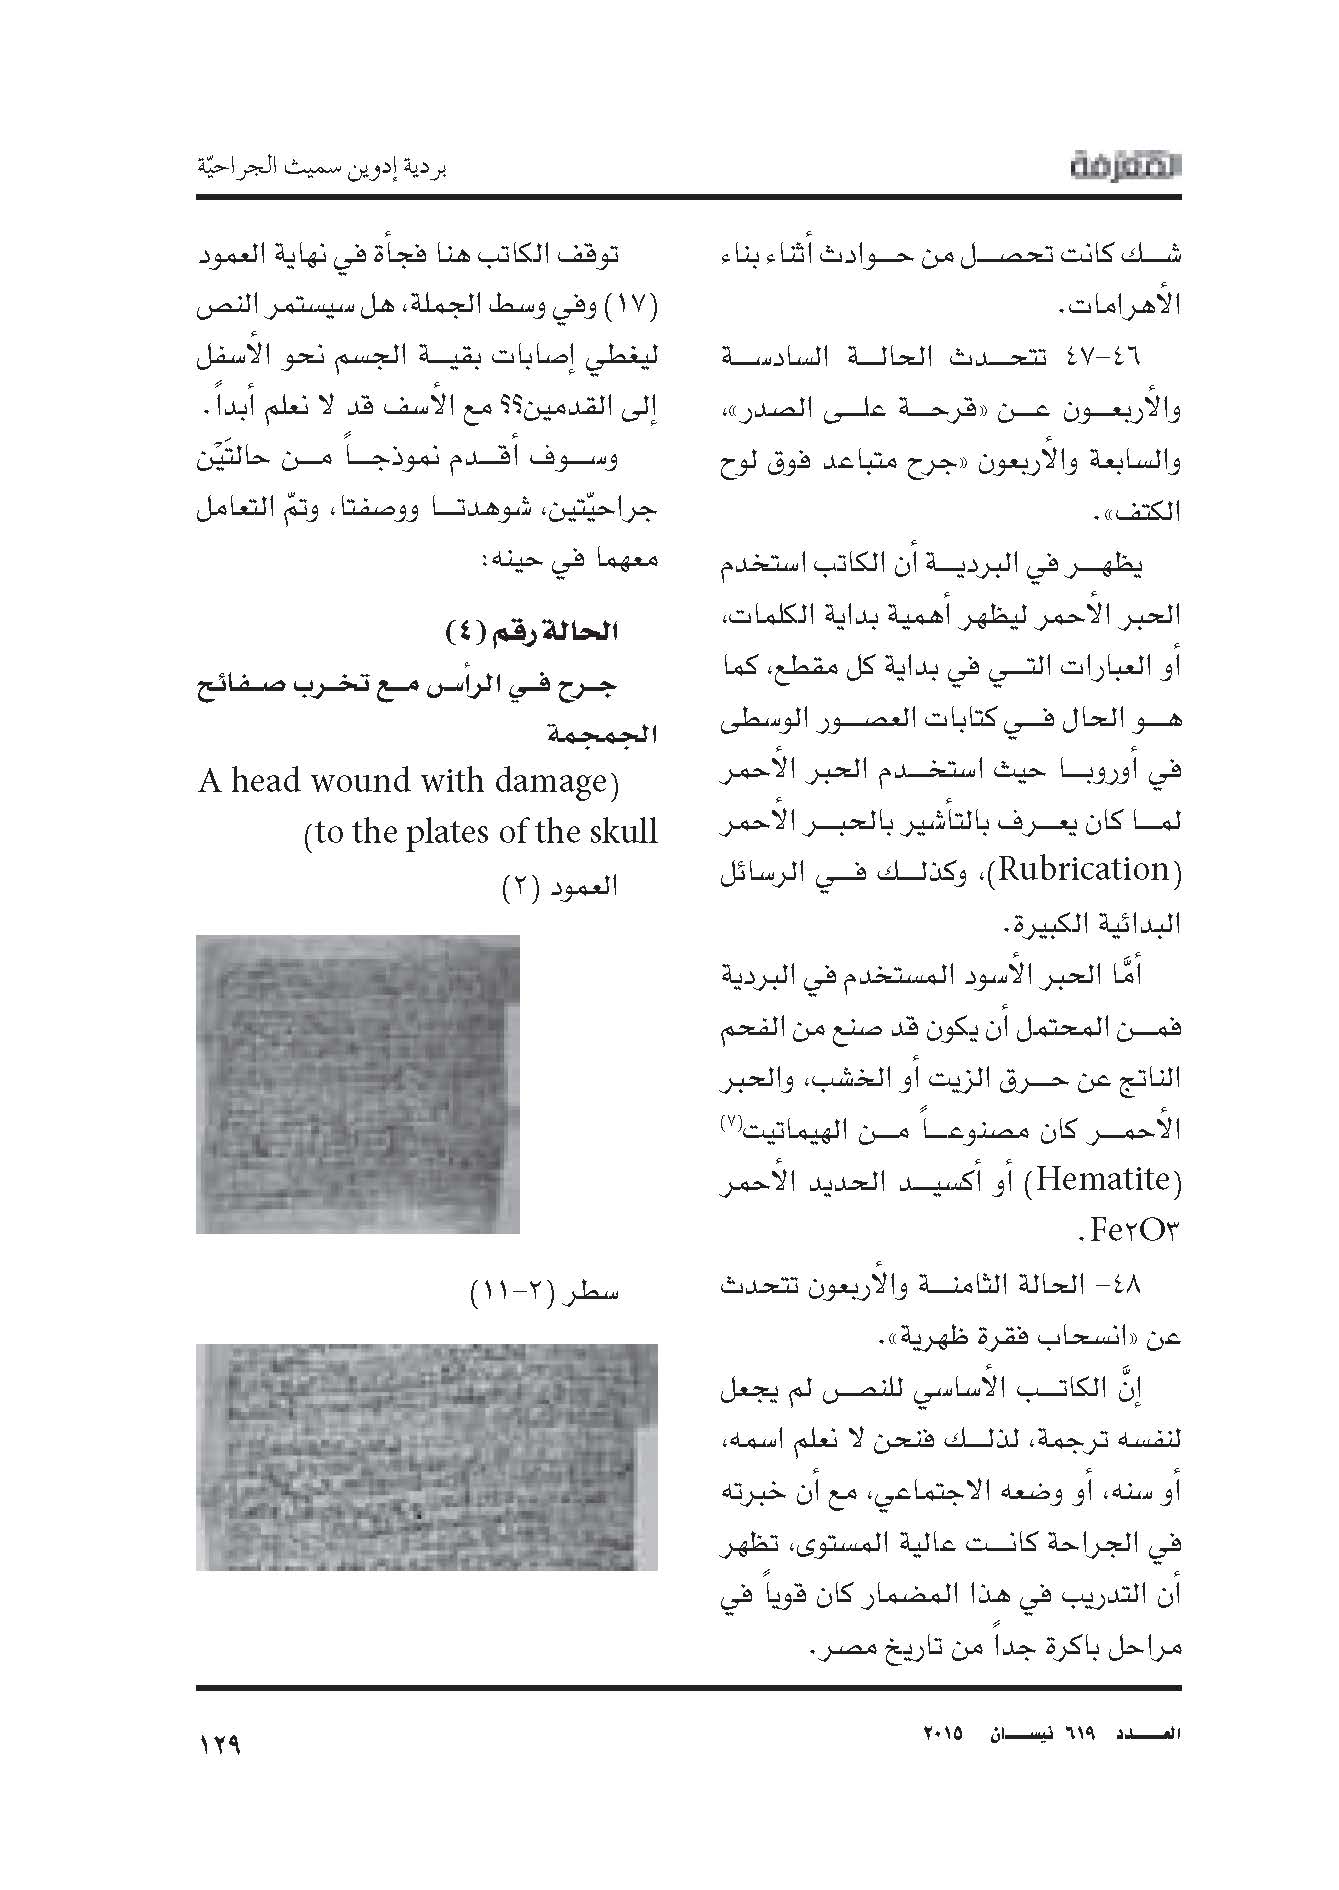 المعرفة
بردية إدوين سميث الجراحيّة
شك كانت تحصل من حوادث أثناء بناء
الأهرامات.
٤٦-٤٧ تتحدث الحالة السادسة
والأربعون عن «قرحة على الصدر»،
والسابعة والأربعون «جرح متباعد فوق لوح
الكتف».
يظهر في البردية أن الكاتب استخدم
الحبر الأحمر ليظهر أهمية بداية الكلمات،
أو العبارات التي في بداية كل مقطع، كما
هو الحال في كتابات العصور الوسطى
في أوروبا حيث استخدم الحبر الأحمر
لما كان يعرف بالتأشير بالحبر الأحمر
(Rubrication)، وكذلك في الرسائل
البدائية الكبيرة.
أمَّا الحبر الأسود المستخدم في البردية
فمن المحتمل أن يكون قد صنع من الفحم
الناتج عن حرق الزيت أو الخشب، والحبر
الأحمر كان مصنوعاً من الهيماتيت(٧)
(Hematite) أو أكسيد الحديد الأحمر
Fe٢O٣.
٤٨- الحالة الثامنة والأربعون تتحدث
عن «انسحاب فقرة ظهرية».
إنَّ الكاتب الأساسي للنص لم يجعل
لنفسه ترجمة، لذلك فنحن لا نعلم اسمه،
أو سنه، أو وضعه الاجتماعي، مع أن خبرته
في الجراحة كانت عالية المستوى، تظهر
أن التدريب في هذا المضمار كان قوياً في
مراحل باكرة جداً من تاريخ مصر.
توقف الكاتب هنا فجأة في نهاية العمود
(١٧) وفي وسط الجملة، هل سيستمر النص
ليغطي إصابات بقية الجسم نحو الأسفل
إلى القدمين؟؟ مع الأسف قد لا نعلم أبداً.
وسوف أقدم نموذجاً من حالتَيْن
جراحيّتين، شوهدتا ووصفتا، وتمّ التعامل
معهما في حينه:
الحالة رقم (٤)
جرح في الرأس مع تخرب صفائح
الجمجمة
(A head wound with damage
to the plates of the skull)
العمود (٢)
سطر (٢-١١)
العدد ٦١٩ نيسان ٢٠١٥
١٢٩